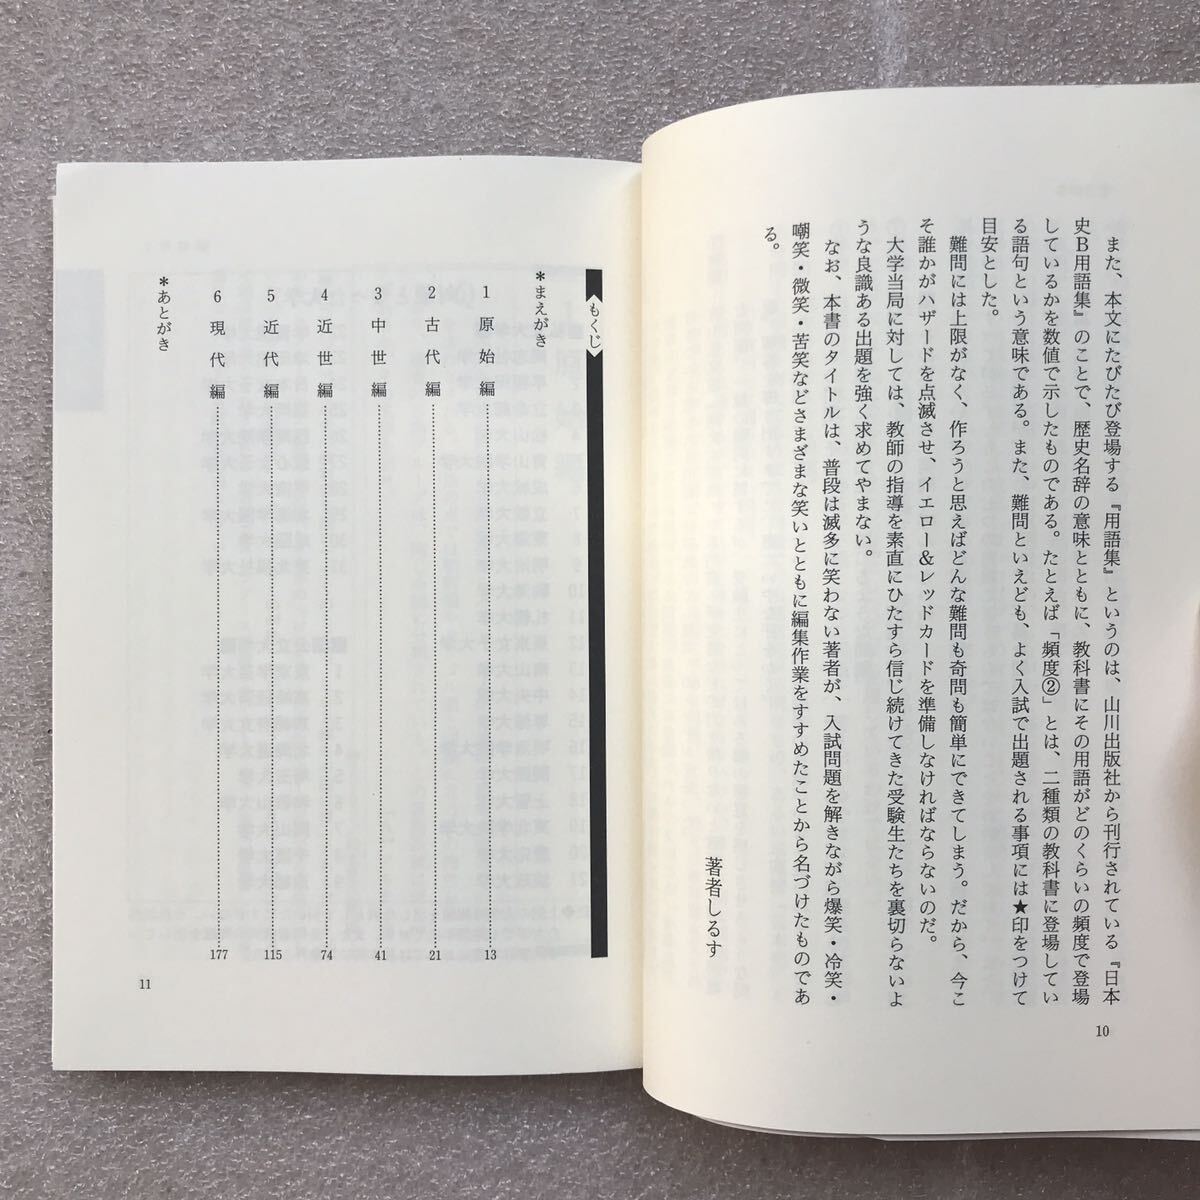 また、本文にたびたび登場する『用語集』というのは、山川出版社から刊行されている『日本
史Ｂ用語集』のことで、歴史名辞の意味とともに、教科書にその用語がどのくらいの頻度で登場
しているかを数値で示したものである。たとえば「頻度②」とは、二種類の教科書に登場してい
る語句という意味である。また、難問といえども、よく入試で出題される事項には★印をつけて
目安とした。
難問には上限がなく、作ろうと思えばどんな難問も奇問も簡単にできてしまう。だから、今こ
そ誰かがハザードを点滅させ、イエロー＆レッドカードを準備しなければならないのだ。
大学当局に対しては、教師の指導を素直にひたすら信じ続けてきた受験生たちを裏切らないよ
うな良識ある出題を強く求めてやまない。
なお、本書のタイトルは、普段は滅多に笑わない著者が、入試問題を解きながら爆笑・冷笑・
嘲笑・微笑・苦笑などさまざまな笑いとともに編集作業をすすめたことから名づけたものであ
る。
著者しるす
10
もくじ
＊まえがき
1 原始編 13
2 古代編 21
3 中世編 41
4 近世編 74
5 近代編 115
6 現代編 177
＊あとがき
11